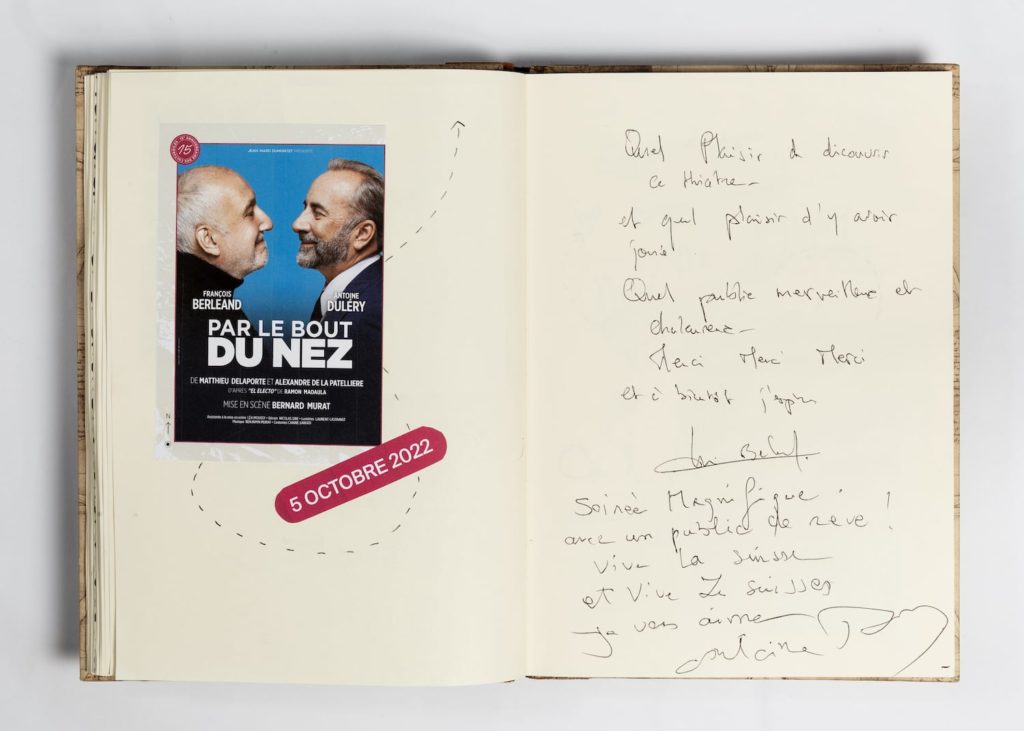 15
JEAN-MARC DUMONTET PRÉSENTE
FRANÇOIS
BERLEAND
ANTOINE
DULÉRY
PAR LE BOUT
DU NEZ
DE MATTHIEU DELAPORTE ET ALEXANDRE DE LA PATELLIERE
D'APRÈS "EL ELECTO" DE RAMON MADAULA
MISE EN SCÈNE BERNARD MURAT
N
5 OCTOBRE 2022
Quel Plaisir de découvrir
ce théâtre
et quel plaisir d'y avoir
joué
Quel public merveilleux et
chaleureux
Merci Merci Merci
et à bientôt j'espère
Soirée Magnifique
avec un public de rêve !
Vive La suisse
et Vive Les suisses
Je vous aime
Antoine